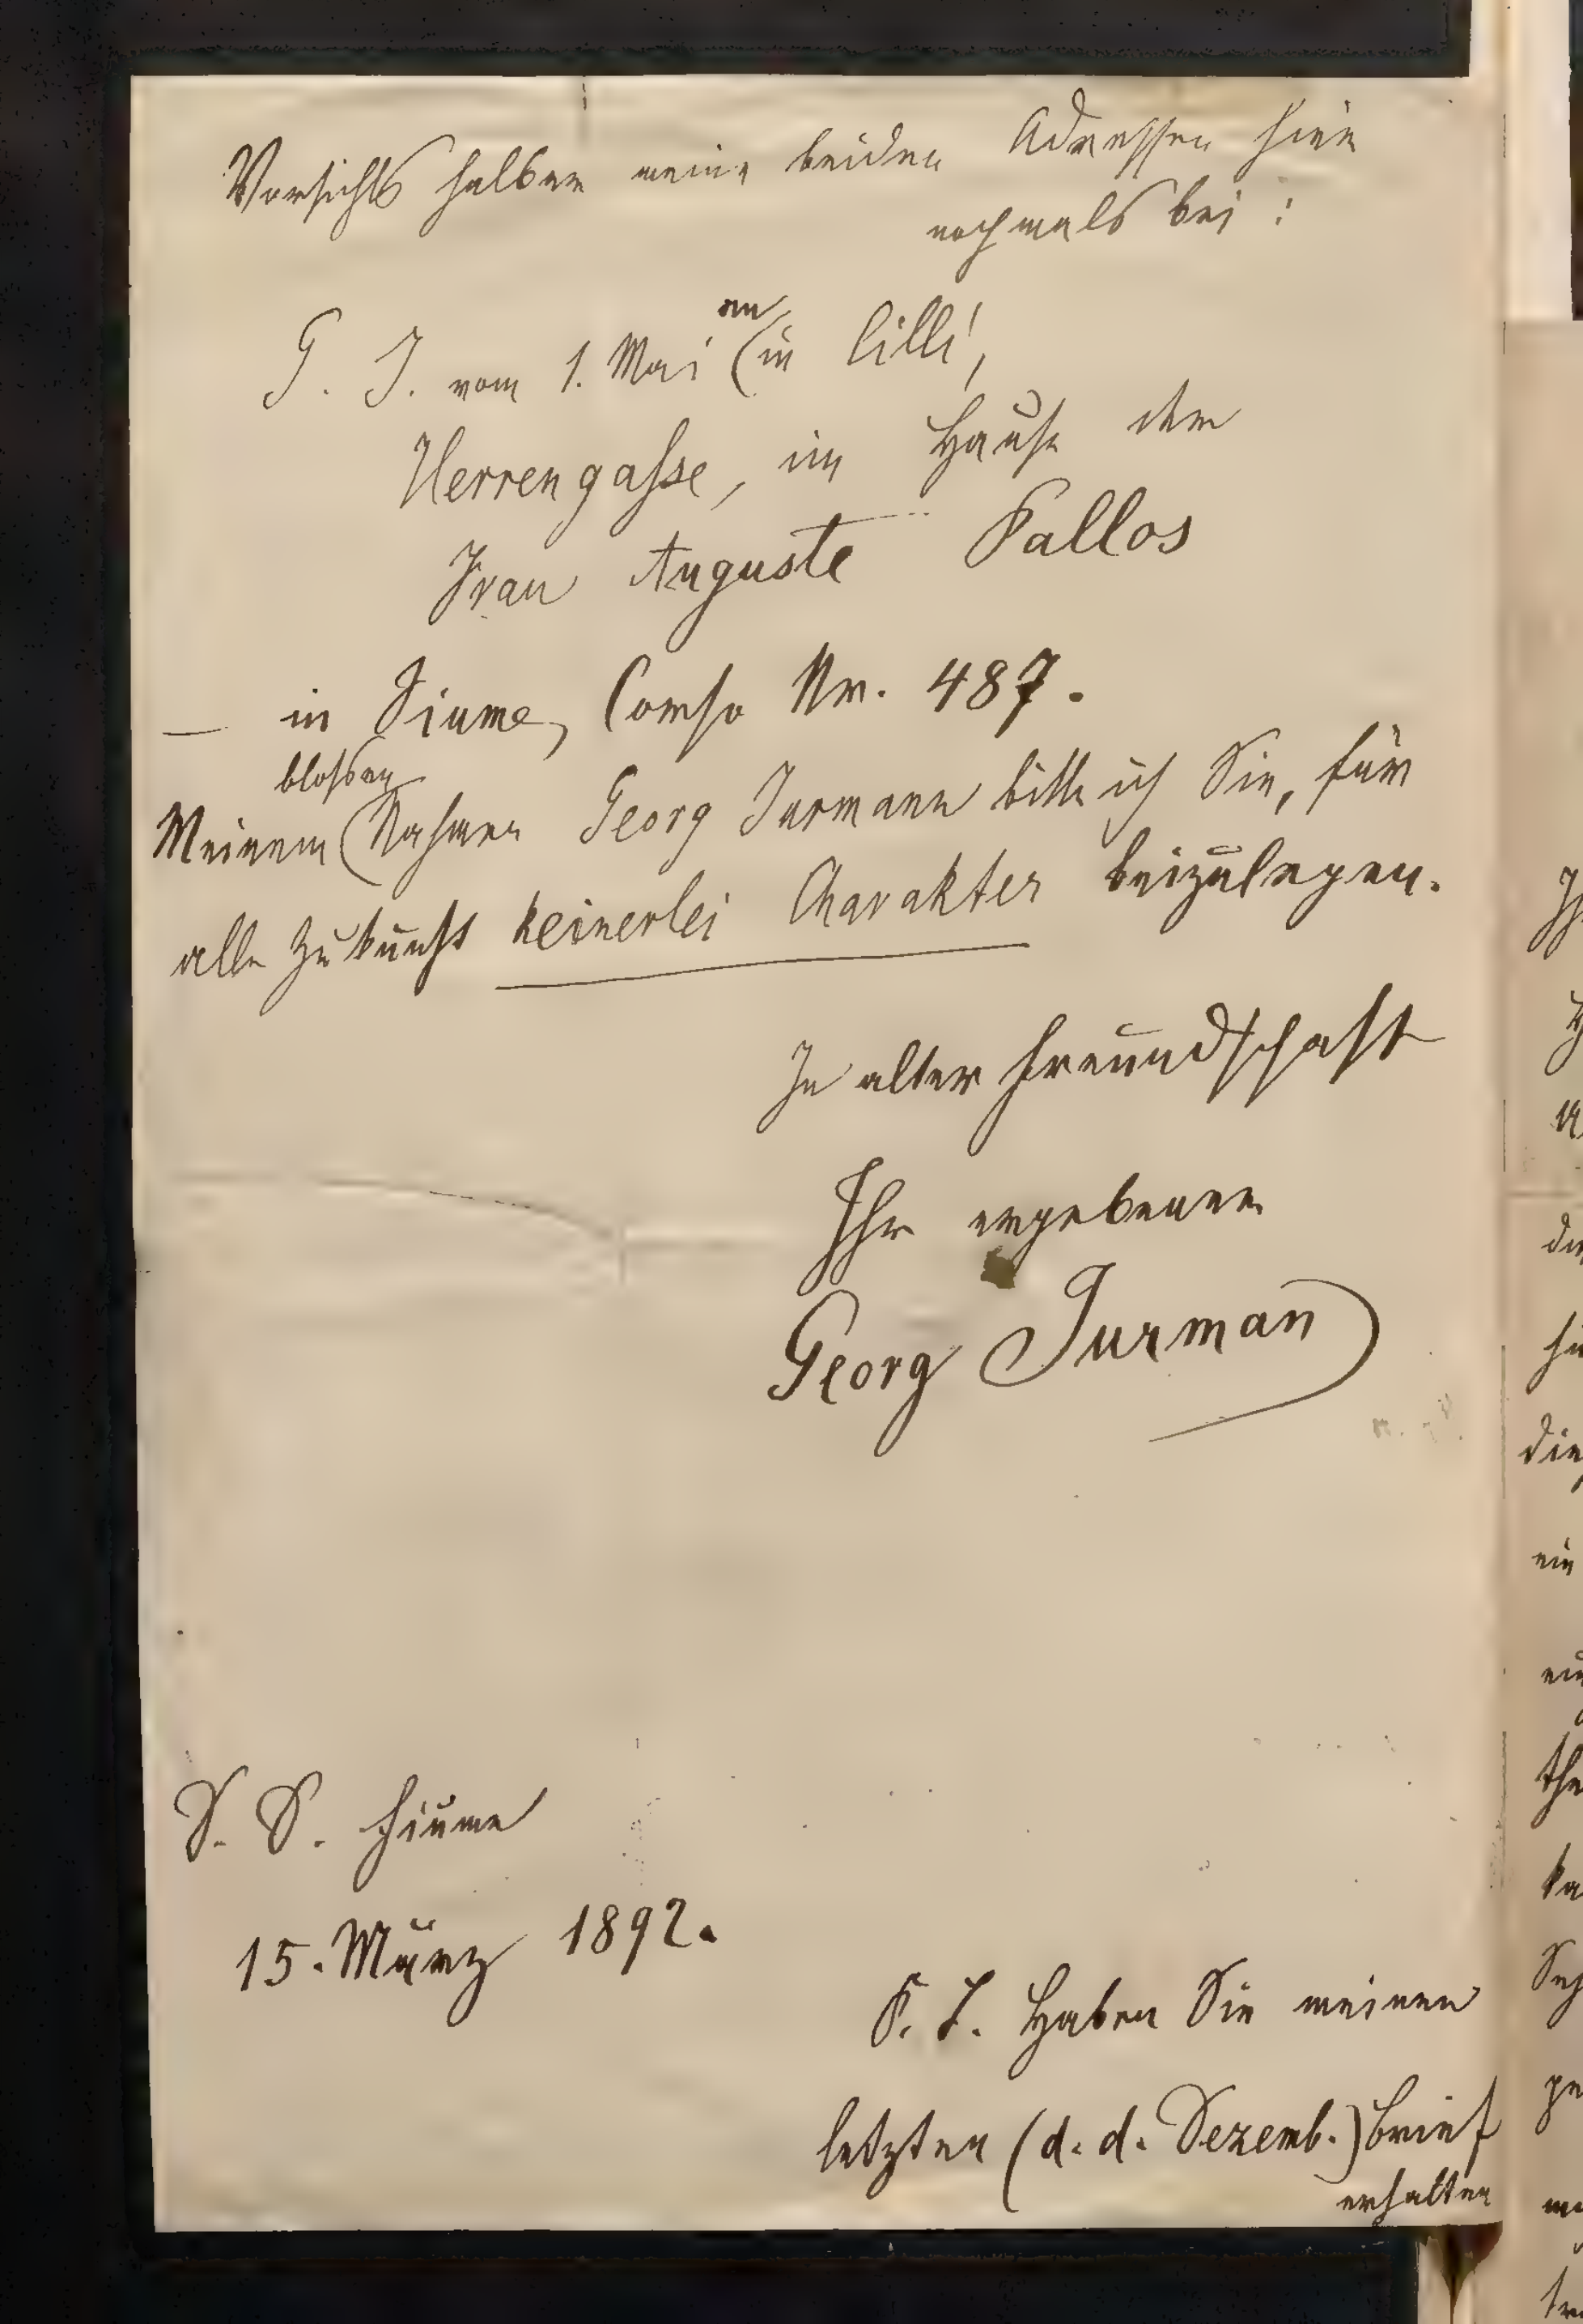 Vorsichts halber meine beiden Adressen hier
nochmals bei :
G. J. vom 1. Mai an in Cilli,
Herrengasse, im Hause der
Frau Auguste Pallos
— in Fiume, Corso Nr. 487.
Meinem blossen Nahmen Georg Jurmann bitte ich Sie, für
alle Zukunft keinerlei Charakter beizulegen.
In alter Freundschaft
Ihr ergebener
Georg Jurman
D. D. Fiume
15. März 1892.
P. S. Haben Sie meinen
letzten (d. d. Dezemb.) Brief
erhalten